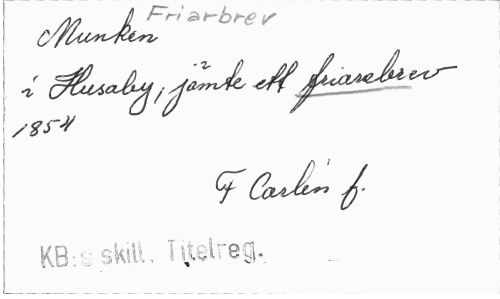 Friarbrev
Munken
i Husaby, jämte ett friarebrev
1854
F Carlén f.
KB:s skill. Titelreg.